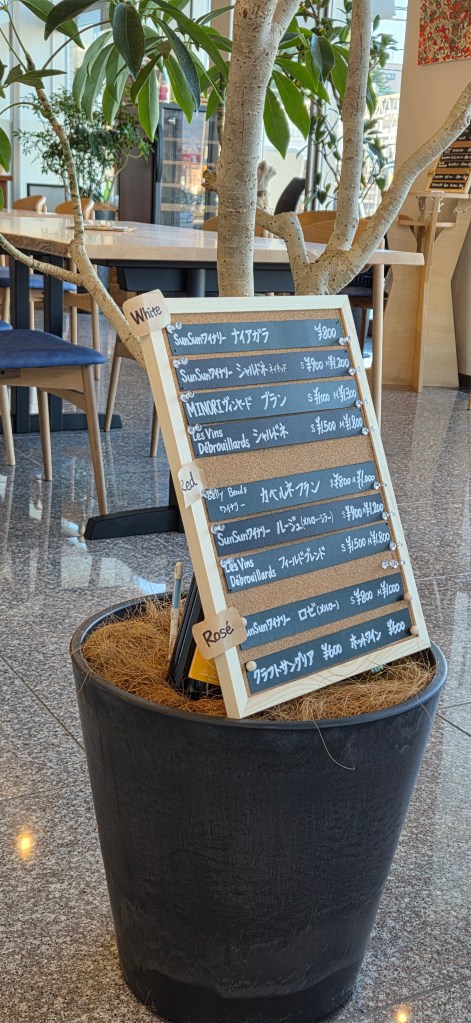 White
SunSunワイナリー ナイアガラ ¥800
SunSunワイナリー シャルドネ S¥900 M¥1,200
MINORIヴィンヤード ブラン S¥1000 M¥1300
Les Vins Débrouillards シャルドネ S¥1500 M¥1,800
Red
Belly Beads ワイナリー カベルネフラン S¥800 M¥1,000
SunSunワイナリー ルージュ(メルロー・シラー) S¥900 M¥1200
Les Vins Débrouillards フィールドブレンド S¥1500 M¥1,800
Rosé
SunSunワイナリー ロゼ(メルロー) S¥800 M¥1000
クラフトサングリア ¥600 ホットワイン ¥600